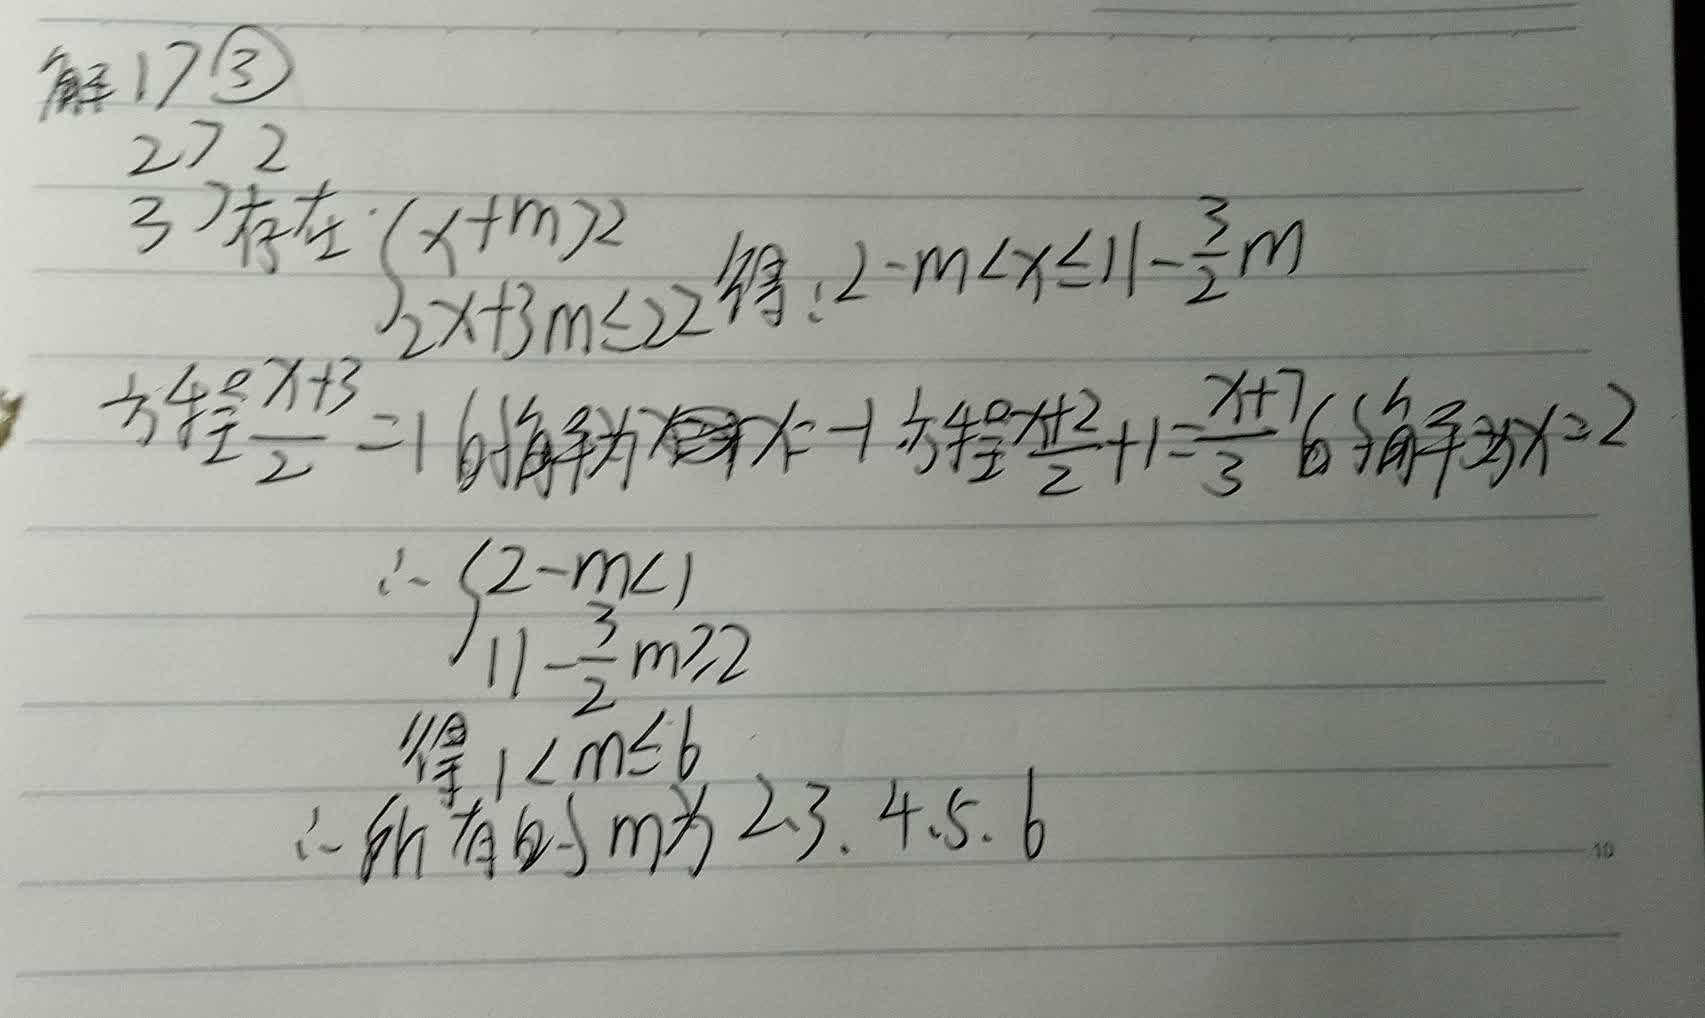 解1)③
2) 2
3)存在{x+m>2
2x+3m≤22 得:2-m<x≤11-3/2m
方程x+3/2=1的解为x=-1 方程x+2/2+1=x+7/3的解为x=2
∴{2-m<1
11-3/2m≥2
得1<m≤6
∴所有的m为2.3.4.5.6
10